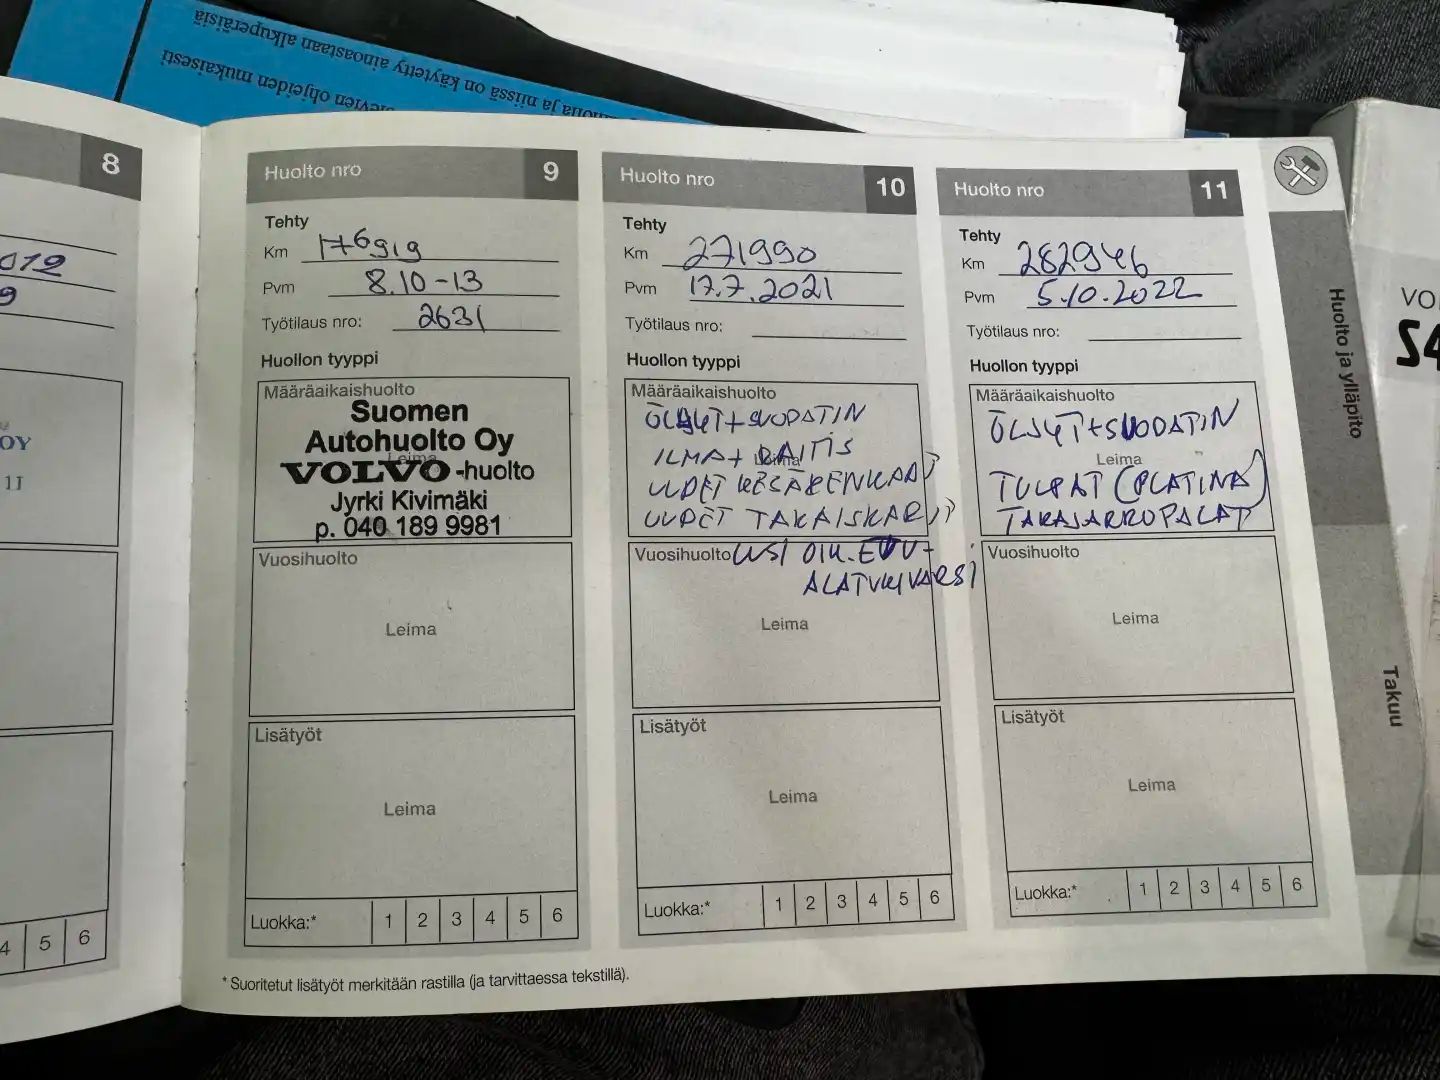 alkuperäisiä
ja niissä on käytetty ainoastaan
ohjeiden mukaisesti
8
012
9
OY
11
4 5 6
Huolto nro 9
Tehty
Km 176919
Pvm 8.10-13
Työtilaus nro: 2631
Huollon tyyppi
Määräaikaishuolto
Leima
Suomen
Autohuolto Oy
VOLVO-huolto
Jyrki Kivimäki
p. 040 189 9981
Vuosihuolto
Leima
Lisätyöt
Leima
Luokka:* 1 2 3 4 5 6
Huolto nro 10
Tehty
Km 271990
Pvm 17.7.2021
Työtilaus nro:
Huollon tyyppi
Määräaikaishuolto
Leima
ÖLJYT+SUODATIN
ILMA+ RAITIS
UUDET KESÄRENKAAT
UUDET TAKAISKARIT
Vuosihuolto UUSI OIK. ETU-
ALATUKIVARSI
Leima
Lisätyöt
Leima
Luokka:* 1 2 3 4 5 6
Huolto nro 11
Tehty
Km 282946
Pvm 5.10.2022
Työtilaus nro:
Huollon tyyppi
Määräaikaishuolto
ÖLJYT+SUODATIN
Leima
TULPAT (PLATINA)
TAKAJARRUPALAT
Vuosihuolto
Leima
Lisätyöt
Leima
Luokka:* 1 2 3 4 5 6
* Suoritetut lisätyöt merkitään rastilla (ja tarvittaessa tekstillä).
Huolto ja ylläpito
Takuu
VO
S4